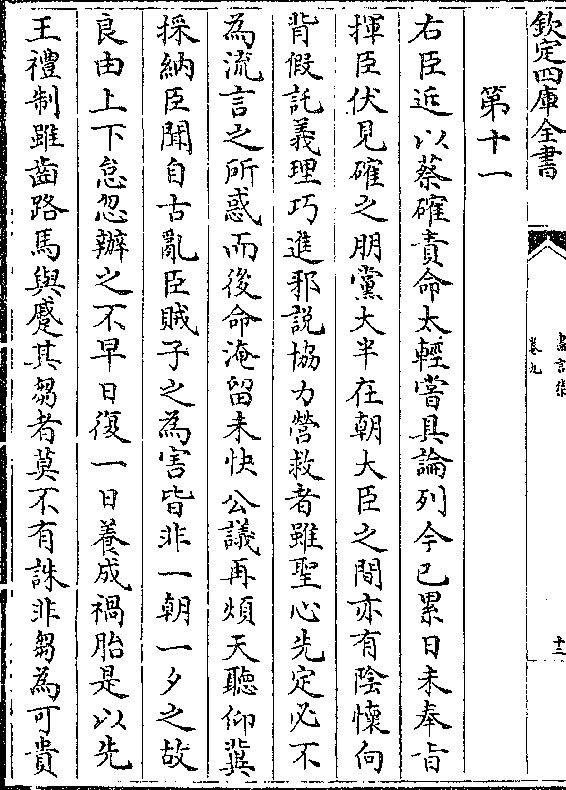 欽定四庫全書
盡言集
卷九
十三
第十一
右臣近以蔡確責命太輕嘗具論列今已累日未奉㫖
揮臣伏見確之朋黨大半在朝大臣之間亦有陰懷向
背假託義理巧進邪説協力營救者雖聖心先定必不
為流言之所惑而後命淹留未快公議再煩天聽仰冀
採納臣聞自古亂臣賊子之為害皆非一朝一夕之故
良由上下怠忽辦之不早日復一日養成禍胎是以先
王禮制雖齒路馬與蹙其芻者莫不有誅非芻為可貴